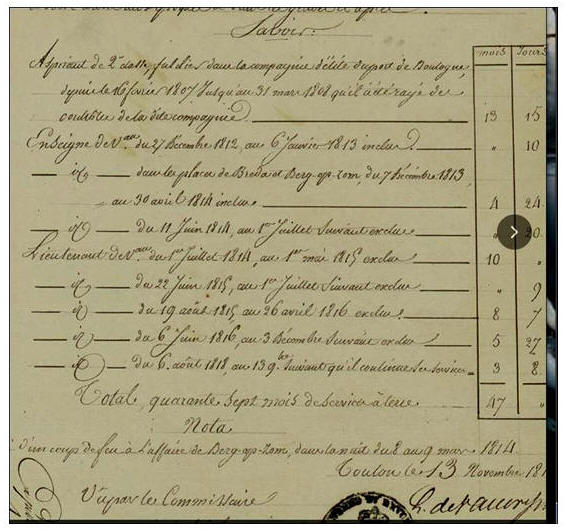 Savoir:
mois jours
Aspirant de 2e classe, fusilier dans la compagnie d'élite du port de Boulogne,
depuis le 16 février 1807 jusqu'au 31 mars 1808 qu'il a été rayé du
contrôle de la dite compagnie 13 15
Enseigne de Vau du 27 Décembre 1812, au 6 Janvier 1813 inclus " 10
id dans les places de Breda et Berg-op-zom, du 7 Décembre 1813,
au 30 avril 1814 inclus 4 24
id du 11 Juin 1814, au 1er Juillet suivant exclus " 20
Lieutenant de Vau du 1er Juillet 1814, au 1er mai 1815 exclus 10 "
id du 22 Juin 1815, au 1er Juillet suivant exclus " 9
id du 19 août 1815 au 26 avril 1816 exclus 8 7
id du 6 Juin 1816, au 3 Décembre suivant exclus 5 27
id du 6 août 1818 au 13 9bre suivant qu'il continue ses services 3 8
Total, quarante sept mois de service à terre 47 "
Nota
d'un coup de feu à l'affaire de Berg-op-zom, dans la nuit du 8 au 9 mars 1814
Toulon le 13 Novembre 181
Vu par le Commissaire